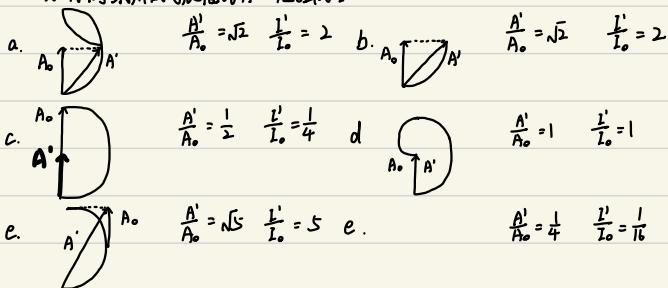 a. A₀ A' A'/A₀ = √2 I'/I₀ = 2 b. A₀ A' A'/A₀ = √2 I'/I₀ = 2
c. A₀ A' A'/A₀ = 1/2 I'/I₀ = 1/4 d A₀ A' A'/A₀ = 1 I'/I₀ = 1
e. A' A₀ A'/A₀ = √5 I'/I₀ = 5 e. A'/A₀ = 1/4 I'/I₀ = 1/16